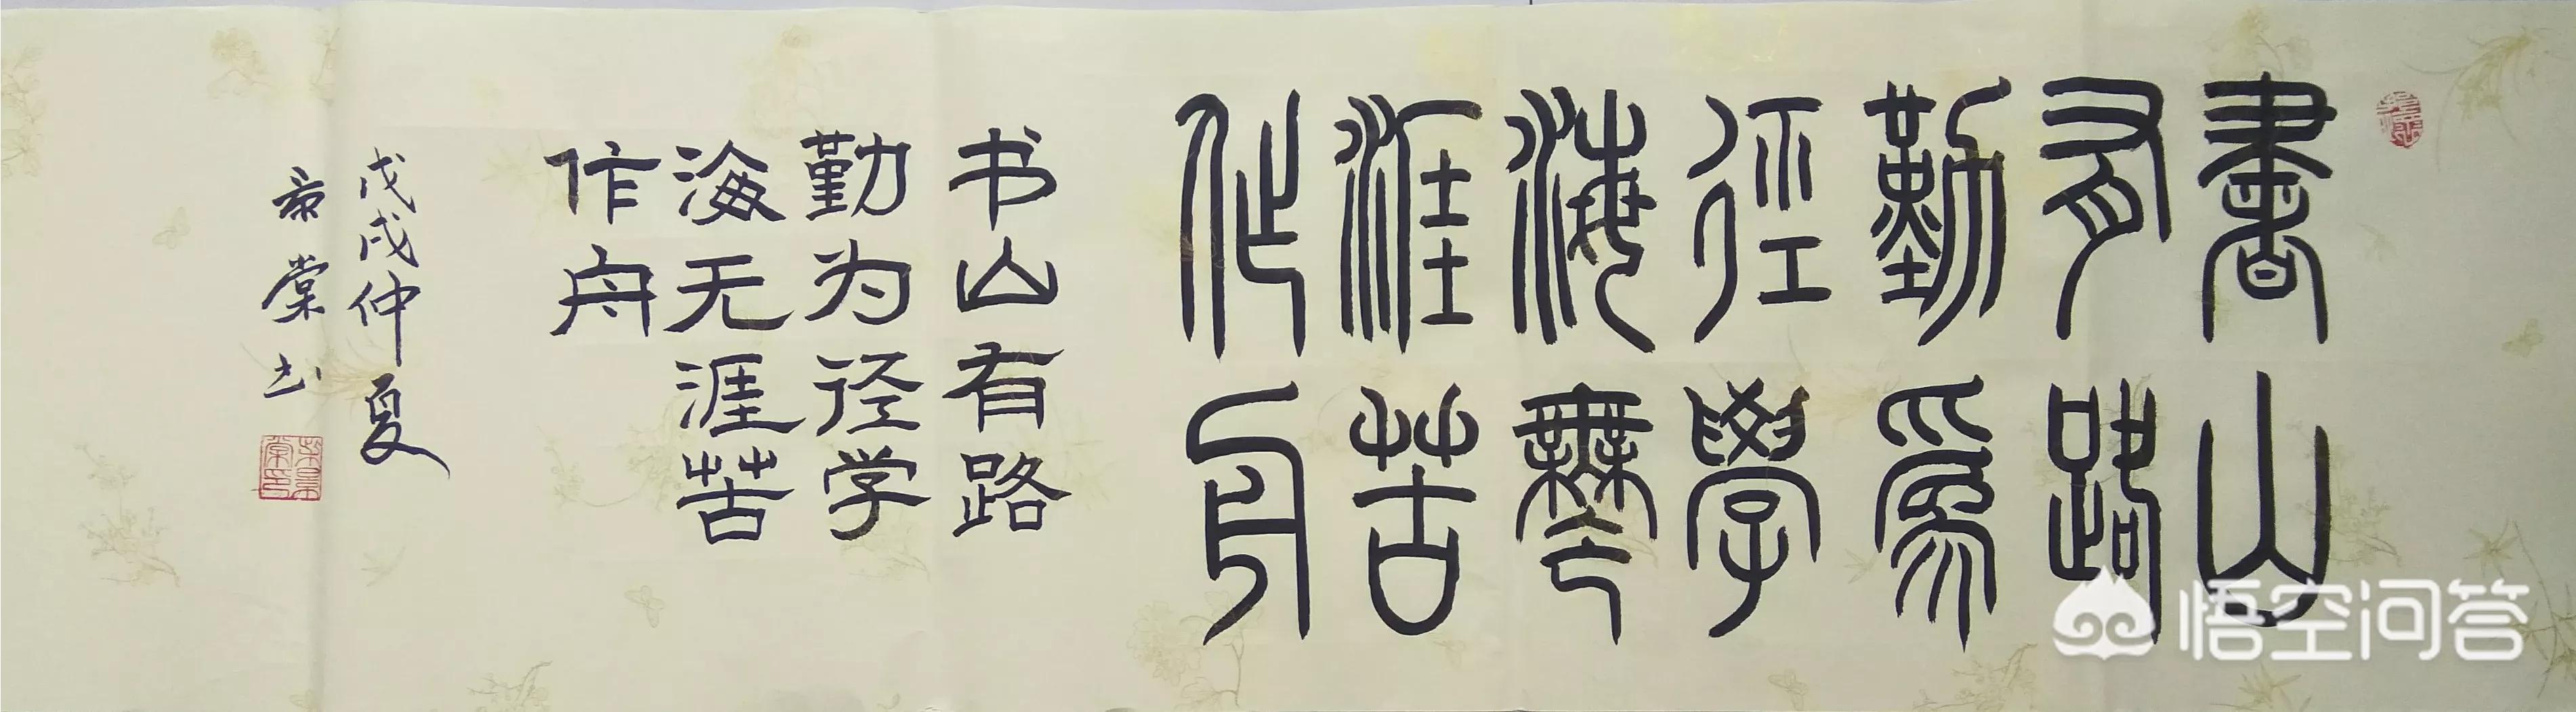 書山
有路
勤爲
徑學
海無
涯苦
作舟
书山有路
勤为径学
海无涯苦
作舟
戊戌仲夏
棠书
悟空问答